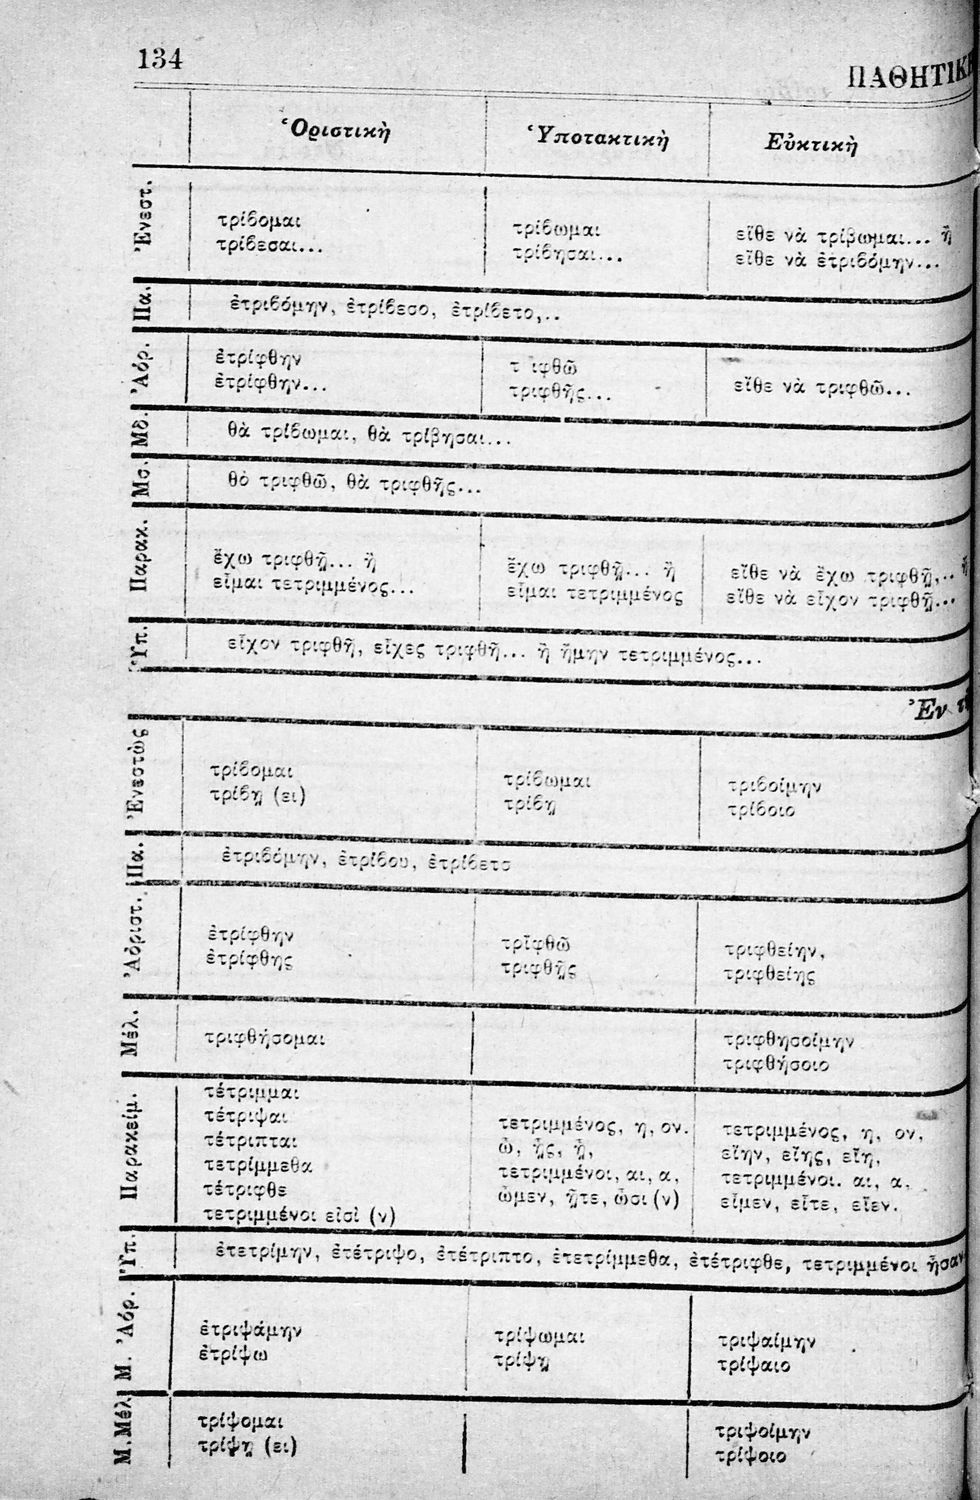 134
ΠΑΘΗΤΙΚ
Ὁριστικὴ Ὑποτακτικὴ Εὐκτικὴ
Ἐνεστ.
τρίβομαι τρίβωμαι εἴθε νὰ τρίβωμαι... ἢ
τρίβεσαι... τρίβησαι... εἴθε νὰ ἐτριβόμην...
Πα. ἐτριβόμην, ἐτρίβεσο, ἐτρίβετο,..
Ἀόρ.
ἐτρίφθην τ ιφθῶ
ἐτρίφθην... τριφθῇς... εἴθε νὰ τριφθῶ...
Μδ. θὰ τρίβωμαι, θὰ τρίβησαι...
Μσ. θὸ τριφθῶ, θὰ τριφθῇς...
Παρακ.
ἔχω τριφθῆ... ἢ ἔχω τριφθῆ... ἢ εἴθε νὰ ἔχω τριφθῆ... ἢ
εἶμαι τετριμμένος... εἶμαι τετριμμένος εἴθε νὰ εἶχον τριφθῆ...
Ὑπ. εἶχον τριφθῆ, εἶχες τριφθῆ... ἢ ἤμην τετριμμένος...
Ἐν
Ἐνεστὼς
τρίβομαι τρίβωμαι τριβοίμην
τρίβῃ (ει) τρίβῃ τρίβοιο
Πα. ἐτριβόμην, ἐτρίβου, ἐτρίβετο
Ἀόριστ.
ἐτρίφθην τριφθῶ τριφθείην,
ἐτρίφθης τριφθῇς τριφθείης
Μέλ.
τριφθήσομαι τριφθησοίμην
τριφθήσοιο
Παρακείμ.
τέτριμμαι
τέτριψαι τετριμμένος, η, ον. τετριμμένος, η, ον,
τέτριπται ὦ, ᾖς, ᾖ, εἴην, εἴης, εἴη,
τετρίμμεθα τετριμμένοι, αι, α, τετριμμένοι. αι, α,
τέτριφθε ὦμεν, ἦτε, ὦσι (ν) εἶμεν, εἶτε, εἶεν.
τετριμμένοι εἰσὶ (ν)
Ὑπ. ἐτετρίμην, ἐτέτριψο, ἐτέτριπτο, ἐτετρίμμεθα, ἐτέτριφθε, τετριμμένοι ἦσαν
Μ. Ἀόρ.
ἐτριψάμην τρίψωμαι τριψαίμην
ἐτρίψω τρίψῃ τρίψαιο
Μ. Μέλ
τρίψομαι τριψοίμην
τρίψῃ (ει) τρίψοιο